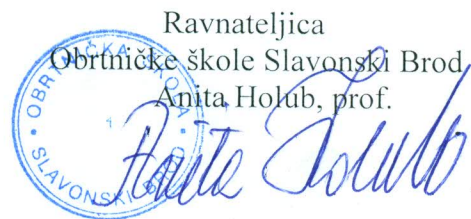 Ravnateljica
Obrtničke škole Slavonski Brod
Anita Holub, prof.
OBRTNIČKA ŠKOLA
SLAVONSKI BROD
1
Anita Holub